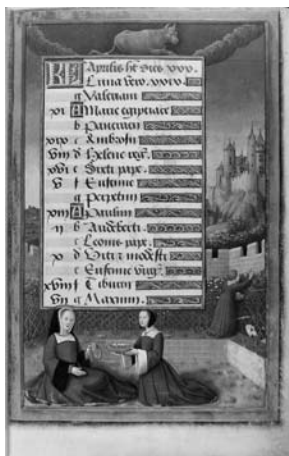 KL Aprilis ht dies xxx.
Luna vero. xxix.
g Valeriani
xi A Marie egiptiace
b Pancracii
xix c Ambrosii
viii d Helene regī.
xvi e Sixti pape.
v f Eufemie
g Perpetui
xiii A Paulini
ii b Audeberti
c Leonis pape.
x d Victor modesti
e Eufemie virgī.
xviii f Tiburcii
vii g Maximi.